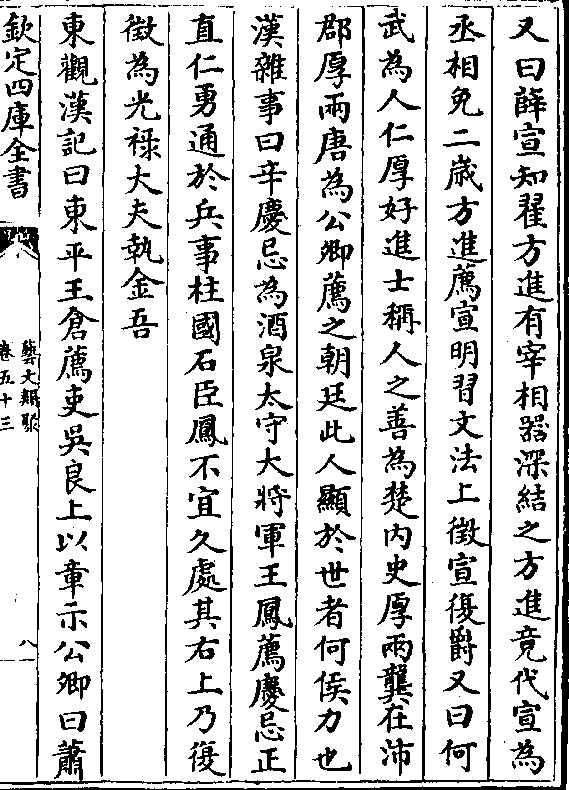 又曰薛宣知翟方進有宰相器深結之方進竟代宣為
丞相免二歲方進薦宣明習文法上徵宣復爵又曰何
武為人仁厚好進士稱人之善為楚内史厚兩龔在沛
郡厚兩唐為公卿薦之朝廷此人顯於世者何侯力也
漢雜事曰辛慶忌為酒泉太守大將軍王鳳薦慶忌正
直仁勇通於兵事柱國石臣鳳不宜久處其右上乃復
徵為光禄大夫執金吾
東觀漢記曰東平王倉薦吏吳良上以章示公卿曰蕭
欽定四庫全書
藝文類聚
卷五十三
八